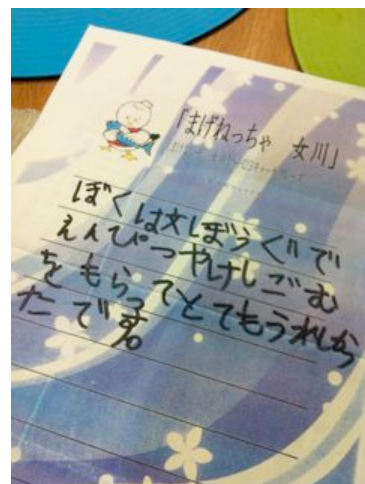 「まげねっちゃ　女川」
ぼくは文ぼうぐで
えんぴつやけしごむ
をもらってとてもうれしから
たです。